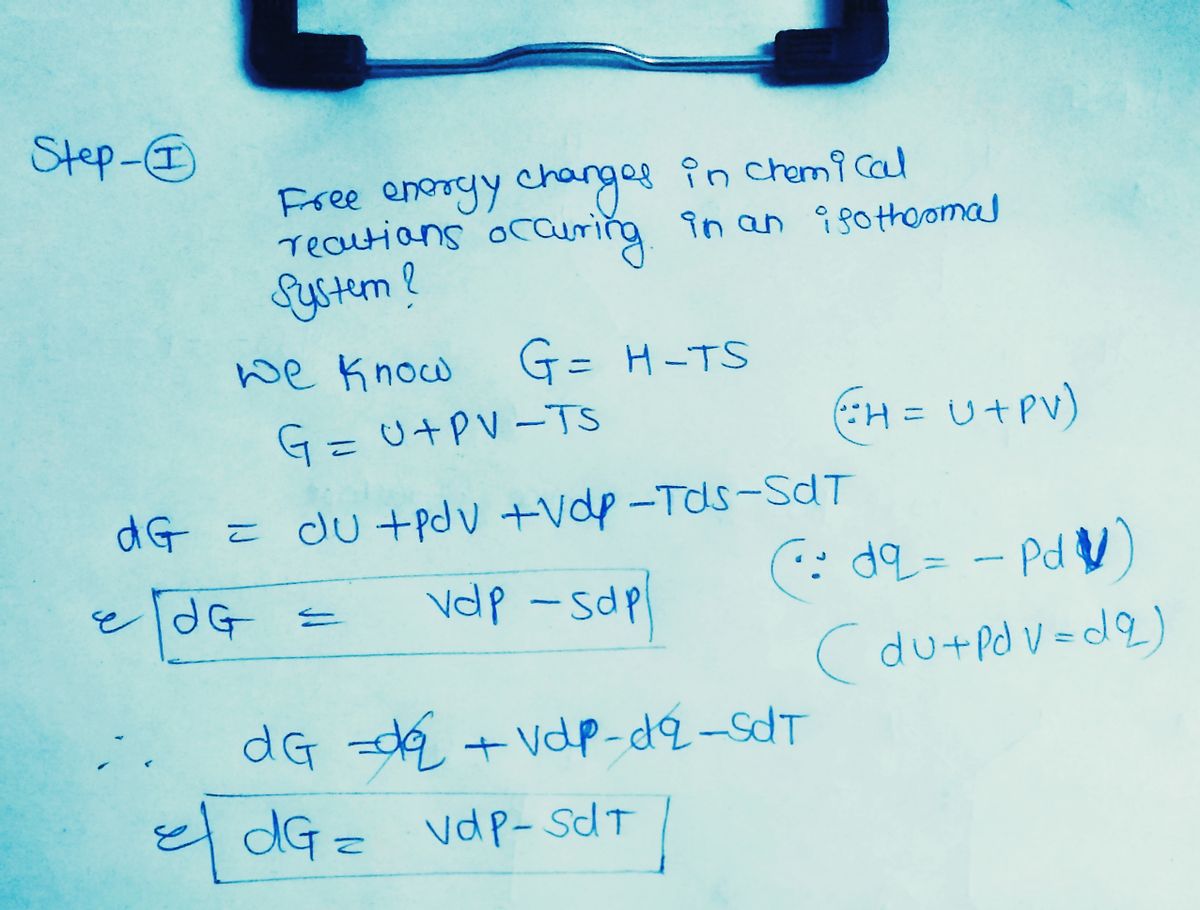 Step-Ⓘ
Free energy changes in chemical
reactions occuring in an isothermal
System?
we Know G = H-TS
G = U+PV-TS (∵H = U+PV)
dG = dU +pdv +vdp -Tds-SdT
dG = vdp - sdp (∵ dq = - PdV)
(dU+Pdv=dq)
∴ dG =dq + vdp-dq-SdT
dG = vdp-SdT